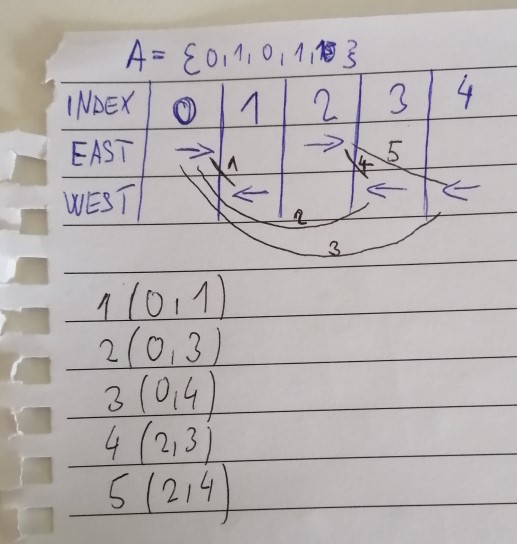 A = {0,1,0,1,1}
INDEX 0 1 2 3 4
EAST → → 
WEST ← ← ←
1 4 5
2
3
1 (0,1)
2 (0,3)
3 (0,4)
4 (2,3)
5 (2,4)